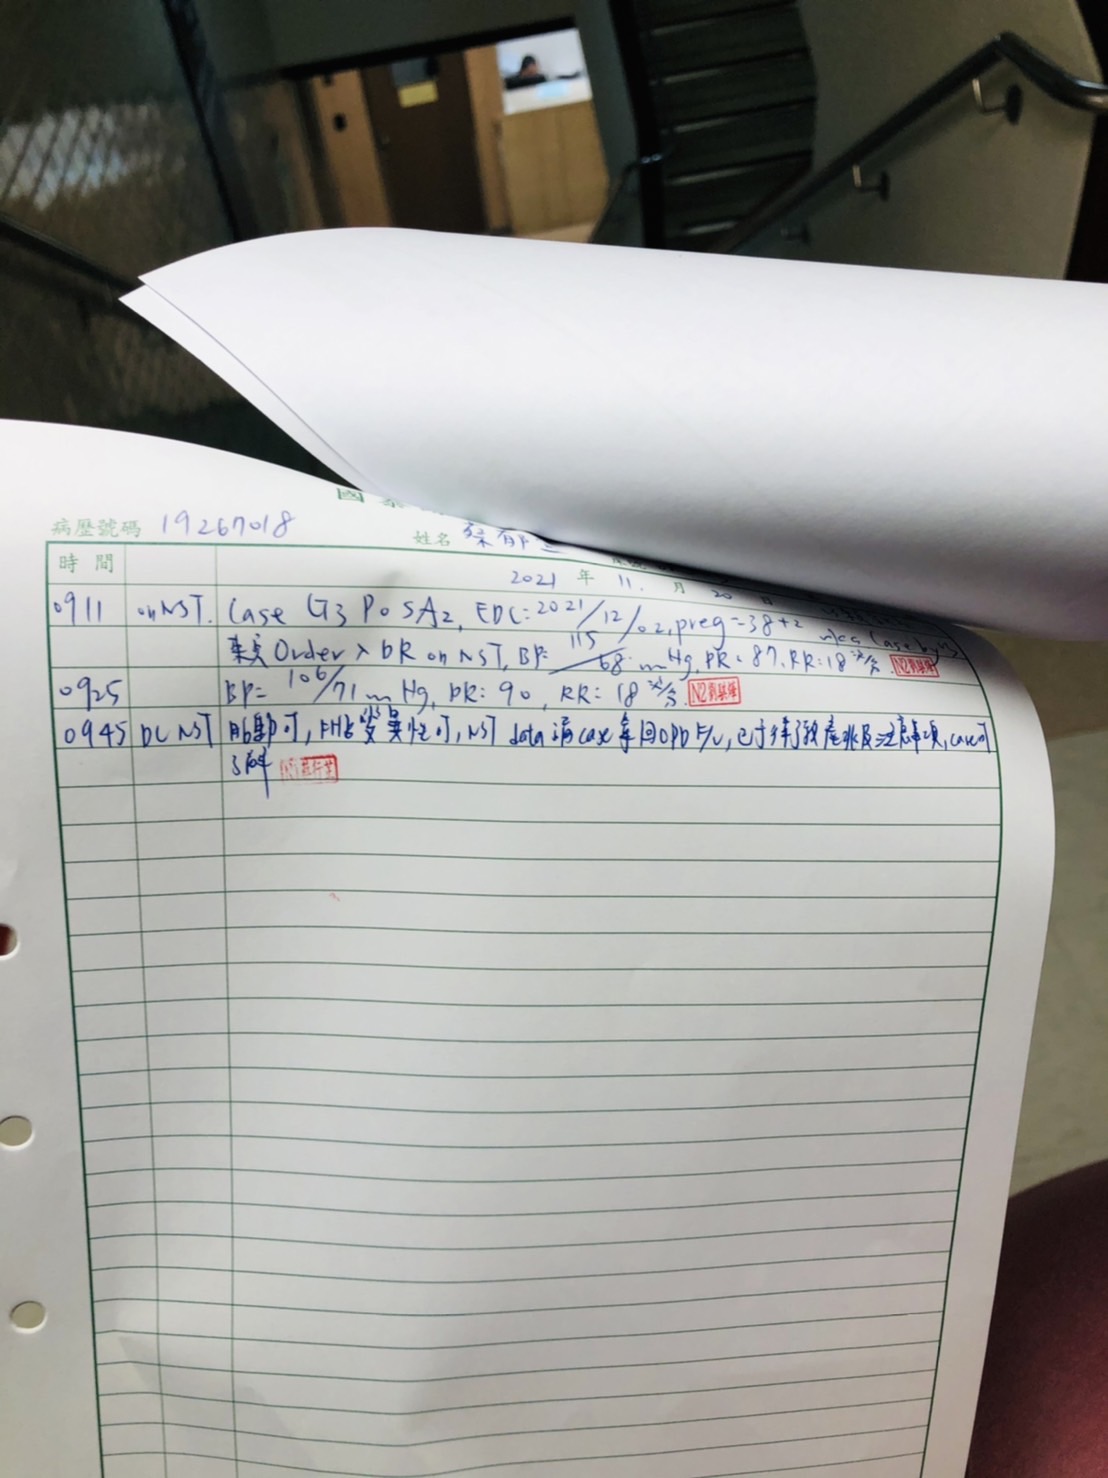 國
病歷號碼 19267018 姓名
時間 2021 年 11 月 20 日
0911 on NST. Case G3 P0 SA2, EDC: 2021/12/02, preg=38+2 wks Case by
Order入 DR on NST, BP: 115/68 mmHg, PR: 87, RR: 18次/分.
0925 BP= 106/71 mmHg, PR: 90, RR: 18次/分.
0945 DC NST 胎動可, FHB變異性可, NST data 請case拿回OPD F/U, 已予衛教產兆及注意事項, case可
了解